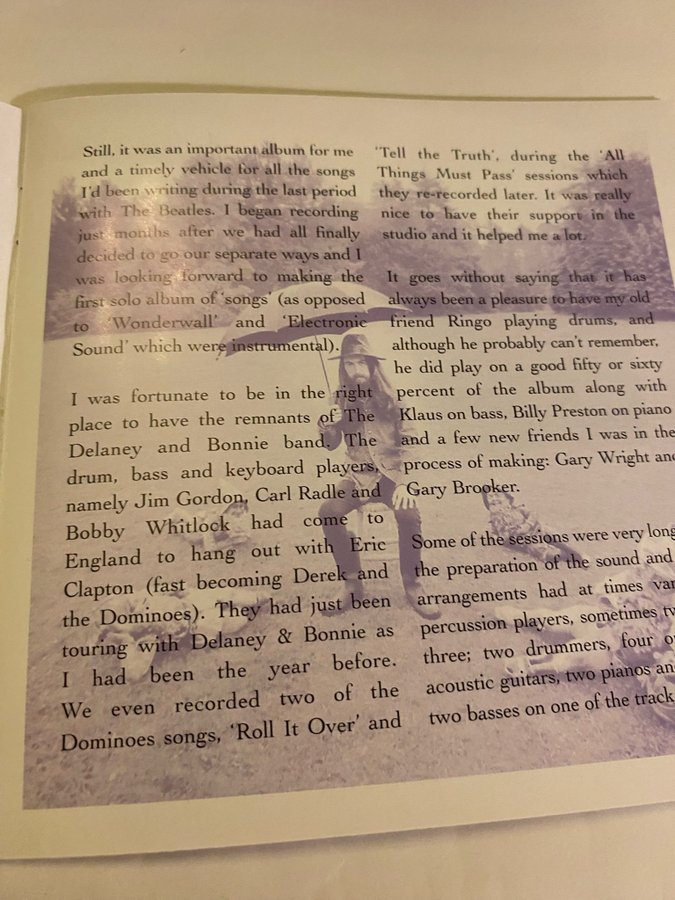 Still, it was an important album for me
and a timely vehicle for all the songs
I'd been writing during the last period
with The Beatles. I began recording
just months after we had all finally
decided to go our separate ways and I
was looking forward to making the
first solo album of 'songs' (as opposed
to 'Wonderwall' and 'Electronic
Sound' which were instrumental).
I was fortunate to be in the right
place to have the remnants of The
Delaney and Bonnie band. The
drum, bass and keyboard players,
namely Jim Gordon, Carl Radle and
Bobby Whitlock had come to
England to hang out with Eric
Clapton (fast becoming Derek and
the Dominoes). They had just been
touring with Delaney & Bonnie as
I had been the year before.
We even recorded two of the
Dominoes songs, 'Roll It Over' and
'Tell the Truth', during the 'All
Things Must Pass' sessions which
they re-recorded later. It was really
nice to have their support in the
studio and it helped me a lot.
It goes without saying that it has
always been a pleasure to have my old
friend Ringo playing drums, and
although he probably can't remember,
he did play on a good fifty or sixty
percent of the album along with
Klaus on bass, Billy Preston on piano
and a few new friends I was in the
process of making: Gary Wright and
Gary Brooker.
Some of the sessions were very long
the preparation of the sound and
arrangements had at times
percussion players, sometimes
three; two drummers, four
acoustic guitars, two pianos
two basses on one of the